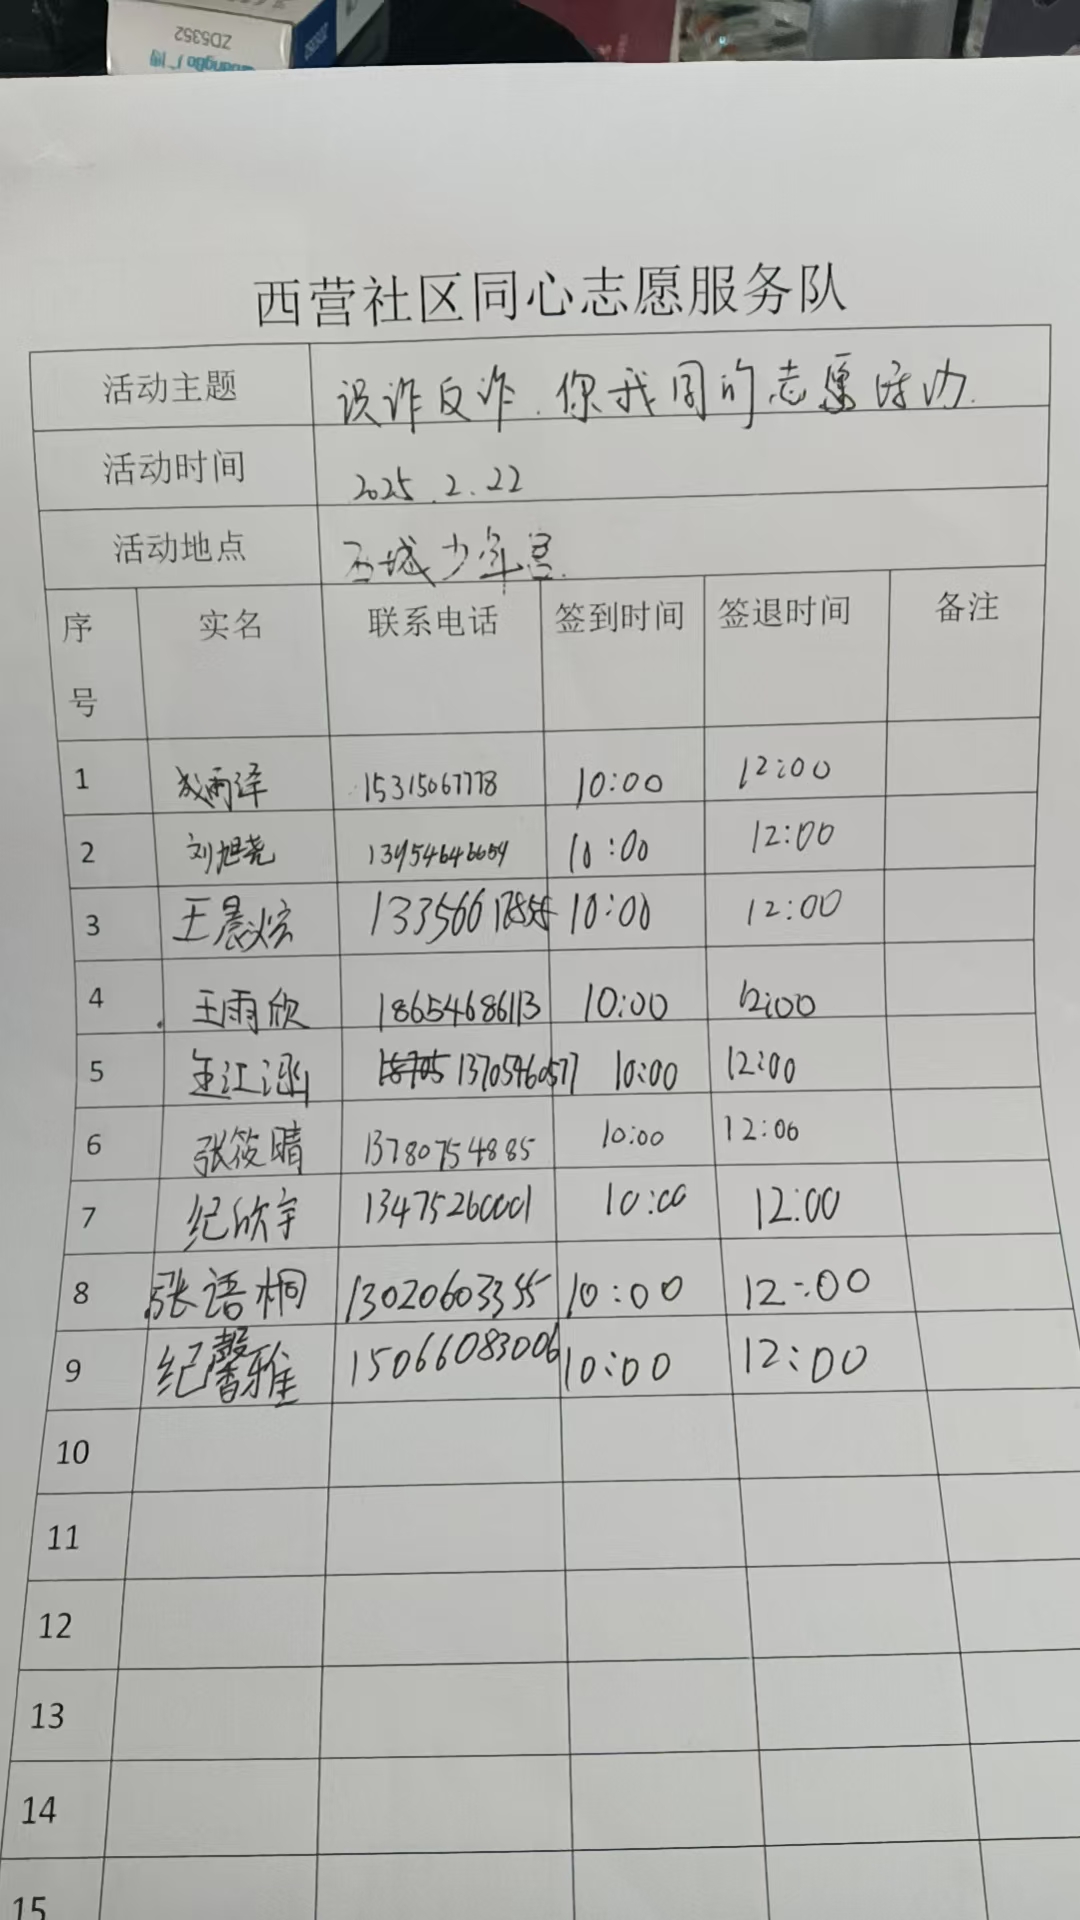 ZD5352
GuangBo 广博
西营社区同心志愿服务队
活动主题 识诈反诈.你我同的志愿活动.
活动时间 2025.2.22
活动地点 西城少年宫.
序号 实名 联系电话 签到时间 签退时间 备注
1 雨泽 15315067778 10:00 12:00
2 刘旭尧 13954646654 10:00 12:00
3 王晨 10:00 12:00
4 王雨欣 18654686113 10:00 12:00
5 江涵 13705460577 10:00 12:00
6 张筱晴 13780754885 10:00 12:00
7 纪欣宇 13475260001 10:00 12:00
8 张语桐 13020603355 10:00 12:00
9 纪馨雅 15066083006 10:00 12:00
10
11
12
13
14
15